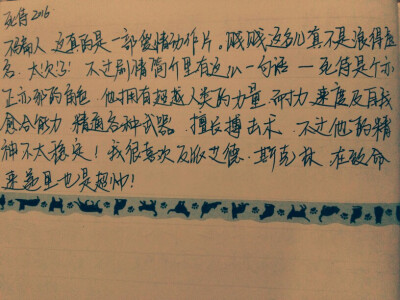 死侍 2016
不骗人 这真的是一部爱情动作片。贱贱这名儿真不是浪得虚
名,太欠了!不过剧情简介里有这么一句话—死侍是个亦
正亦邪的角色,他拥有超越人类的力量、耐力、速度及自我
愈合能力,精通各种武器,擅长搏击术,不过他的精
神不太稳定!我很喜欢反版艾德·斯克林,在致命
来递里也是超帅!